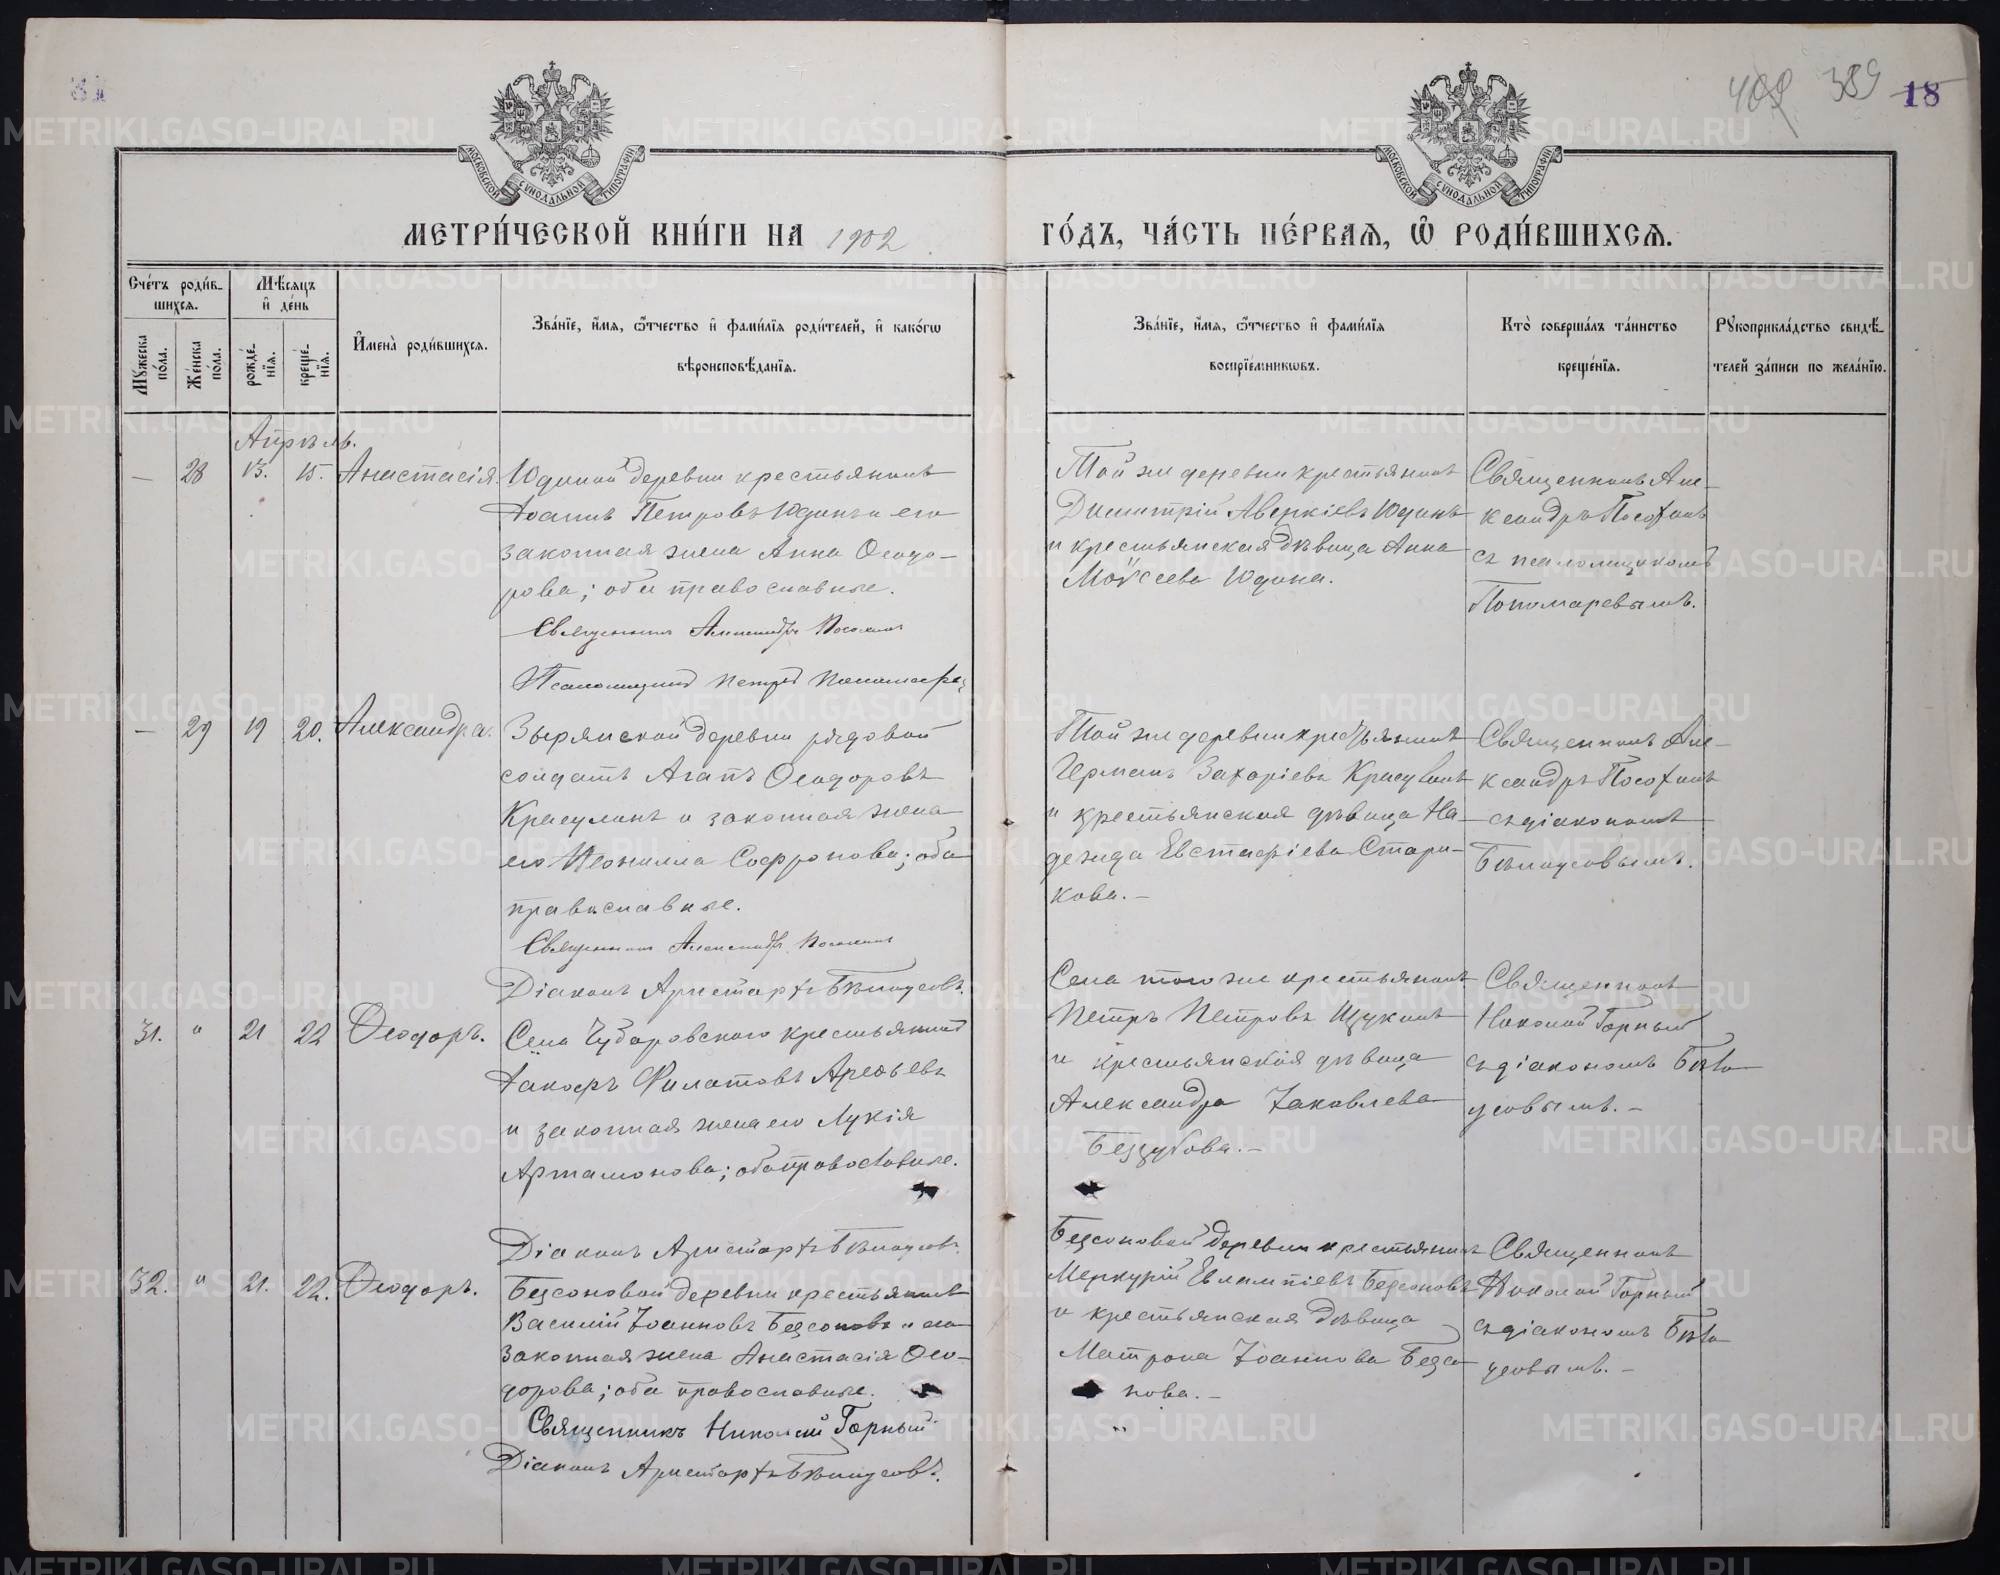 400 389 18
МОСКОВСКОЙ СѴНОДАЛЬНОЙ ТИПОГРАФІИ
МОСКОВСКОЙ СѴНОДАЛЬНОЙ ТИПОГРАФІИ
МЕТРИ́ЧЕСКОЙ КНИ́ГИ НА 1902
ГО́ДЪ, ЧА́СТЬ ПЕ́РВАЯ, Ѡ РОДИ́ВШИХСЯ.
Сче́тъ роди́в-
шихся.
Мѣсяцъ
и де́нь
Мꙋ́жеска по́ла.
Же́нска по́ла.
рожде́-
нїя.
креще́-
нїя.
И҆мена̀ роди́вшихся.
Зва́нїе, и҆́мя, ѻ҆́тчество и҆ фамі́лїя роди́телей, и҆ како́гѡ
вѣроисповѣ́данїя.
Зва́нїе, и҆́мя, ѻ҆́тчество и҆ фамі́лїя
воспрїе́мниковъ.
Кто̀ соверша́лъ та́инство
креще́нїя.
Рꙋкоприкла́дство свидѣ́-
телей за́писи по жела́нїю.
Апрѣль.
— 28 13. 15. Анастасія.
Юдиной деревни крестьянинъ
Іоаннъ Петровъ Юдинъ и его
законная жена Анна Ѳеодо-
рова; оба православные.
Священникъ Александръ Посохинъ
Псаломщикъ Петръ Пономаревъ
Той же деревни крестьянинъ
Димитрій Аверкіевъ Юдинъ
и крестьянская дѣвица Анна
Моѵсеева Юдина.
Священникъ Але-
ксандръ Посохинъ
съ псаломщикомъ
Пономаревымъ.
— 29 19 20. Александра.
Зырянской деревни рядовой
солдатъ Агапъ Ѳеодоровъ
Красулинъ и законная жена
его Неонилла Софронова; оба
православные.
Священникъ Александръ Посохинъ
Діаконъ Аристархъ Бѣлоусовъ.
Той же деревни крестьянинъ
Германъ Захаріевъ Красулинъ
и крестьянская дѣвица На-
дежда Евстафіева Стари-
кова.—
Священникъ Але-
ксандръ Посохинъ
съ діакономъ
Бѣлоусовымъ.
31. " 21 22 Ѳеодоръ.
Села Чубаровскаго крестьянинъ
Іаковъ Филатовъ Арефьевъ
и законная жена его Лукія
Артамонова; оба православные.
Діаконъ Аристархъ Бѣлоусовъ.
Села того же крестьянинъ
Петръ Петровъ Щукинъ
и крестьянская дѣвица
Александра Іаковлева
Беззубова.—
Священникъ
Николай Горный
съ діакономъ Бѣло
усовымъ.—
32. " 21. 22. Ѳеодоръ.
Безсоновой деревни крестьянинъ
Василій Іоанновъ Безсоновъ и его
законная жена Анастасія Ѳео-
дорова; оба православные.
Священникъ Николай Горный
Діаконъ Аристархъ Бѣлоусовъ.
Безсоновой деревни крестьянинъ
Меркурій Евлампіевъ Безсоновъ
и крестьянская дѣвица
Матрона Іоаннова Безсо-
нова.—
Священникъ
Николай Горный
съ діакономъ Бѣло
усовымъ.—
METRIKI.GASO-URAL.RU